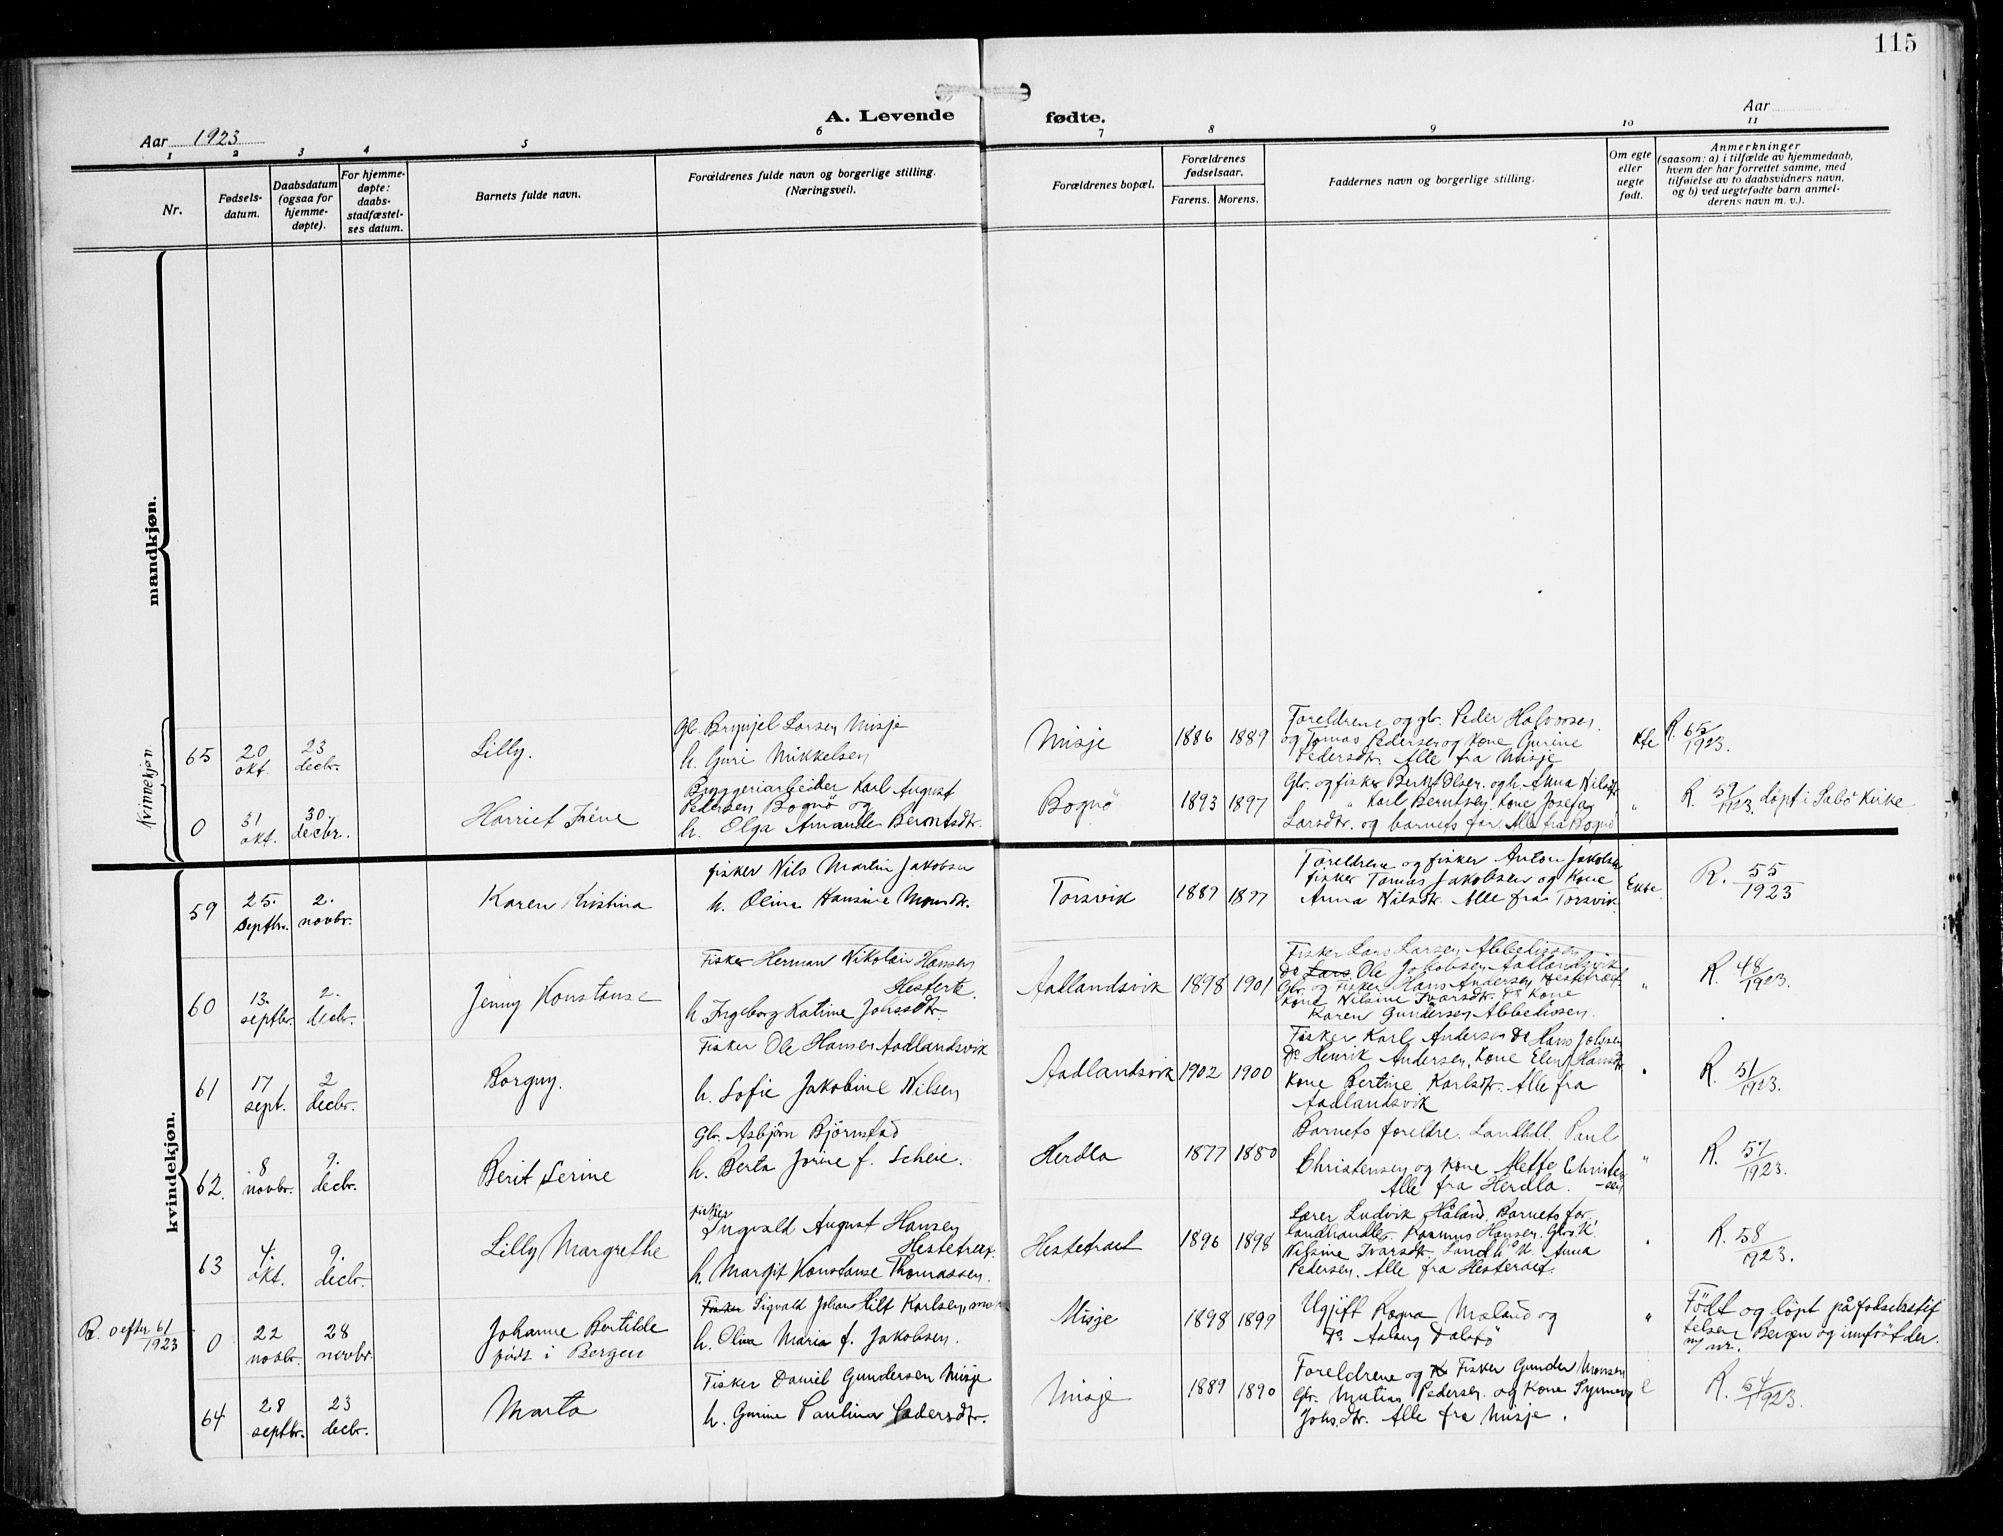 115
A. Levende fødte.
Aar 1923
Aar
1 2 3 4 5 6 7 8 9 10 11
Nr.
Fødsels-
datum.
Daabsdatum
(ogsaa for
hjemme-
døpte).
For hjemme-
døpte:
daabs-
stadfæstel-
ses datum.
Barnets fulde navn.
Forældrenes fulde navn og borgerlige stilling.
(Næringsvei).
Forældrenes bopæl.
Forældrenes
fødselsaar.
Farens. Morens.
Faddernes navn og borgerlige stilling.
Om egte
eller
uegte
født.
Anmerkninger
(saasom: a) i tilfælde av hjemmedaab,
hvem der har forrettet samme, med
tilføielse av to daabsvidners navn,
og b) ved uegtefødte barn anmel-
derens navn m. v.).
mandkjøn.
Kvinnekjøn
65
20
okt.
23
decbr.
Lilly.
Gbr. Brynjel Larsen Misje
h. Guri Mikkelsen
Misje
1886 1889
Foreldrene og gbr. Peder Halvorsen
og Tomas Pedersen og kone Gurine
Pedersdtr. Alle fra Misje
Kfe
R. 65/1923.
0
31
okt.
30.
decbr.
Harriet Iréne
Bryggeriarbeider Karl August
Pedersen Bognø og
h. Elga Amanda Berntsdtr.
Bognø
1893 1897
Gbr. og fisker Bernt Olsen og h. Anna Nilsdtr
" Karl Berntsen, kone Josefa
Larsdtr. og barnets far. Alle fra Bognø
"
R. 59/1923. døpt i Salbø Kirke
kvindekjøn.
59
25.
septbr.
2.
novbr.
Karen Kristina
fisker Nils Martin Jakobsen
h. Olina Hansine Monsdtr.
Torsvik
1889 1897
Foreldrene og fisker Anton Jakobsen
fisker Tomas Jakobsen og kone
Anna Nilsdtr. Alle fra Torsvik.
Ekte
R. 55/1923
60
13.
septbr.
2.
decbr.
Jenny Konstanse
Fisker Herman Nikolai Hansen
Hestetr.
h Ingeborg Katrine Johssdtr.
Aadlandsvik
1898 1901
Fisker Lars Larsen Abbedissen
Do Lars Ole Jakobsen Aadlandsvik
Gbr. og Fisker Hans Andersen Hestetræet
kone Nilsine Ivarsdtr. Do kone
Karen Gundersen Abbedissen.
"
R. 48/1923.
61
17
sept.
2
decbr.
Borguy.
Fisker Ole Hansen Aadlandsvik
h. Sofie Jakobine Nilsen
Aadlandsvik
1902 1900
Fisker Karl Andersen Do Hans Johssen
Do Henrik Andersen, kone Elen Hansdtr
kone Bertine Karlsdtr. Alle fra
Aadlandsvik
"
R. 51/1923.
62.
8
novbr.
9.
decbr.
Berit Serine
Gbr. Asbjørn Bjørnstad
h. Berta Jorine f. Scheie.
Herdla
1877 1880
Barnets foreldre. Landhdl. Paul
Christensen og kone Mette Christen
-sen
Alle fra Herdla.
"
R. 57/1923.
63
4.
okt.
9.
decbr.
Lilly Margrethe
fisker
Ingvald August Hansen
Hestetræet.
h. Margit Konstanse Thomassen.
Hestetraet
1896 1898
Lærer Ludvik Håland. Barnets far
landhandler Rasmus Hansen. Gbrs. k.
Nilsine Ivarsdtr. Landh. k. Anna
Pedersen. Alle fra Hestetræet.
"
R. 58/1923.
R. 0 efter 61/1923
0
22
novbr.
28
novbr.
Johanne Bertilde
født i Bergen
Fisker Sigvald Johan Hilt Karlsen
h. Olina Maria f. Jakobsen.
Misje
1898 1899
Ugift Ragna Moland og
Do Aslaug Dalsbø
"
Født og døpt på fødselsstif
telsen Bergen og innført der.
m/ nr.
64
28
septbr.
23
decbr.
Marta
Fisker Daniel Gundersen Misje
h. Gurine Paulina Pedersdtr.
Misje
1889 1890
Foreldrene og Fisker Gunder Monsen
Gbr. Matias Pedersen og kone Synneva
Johs.dtr. Alle fra Misje.
e
R. 64/1923.